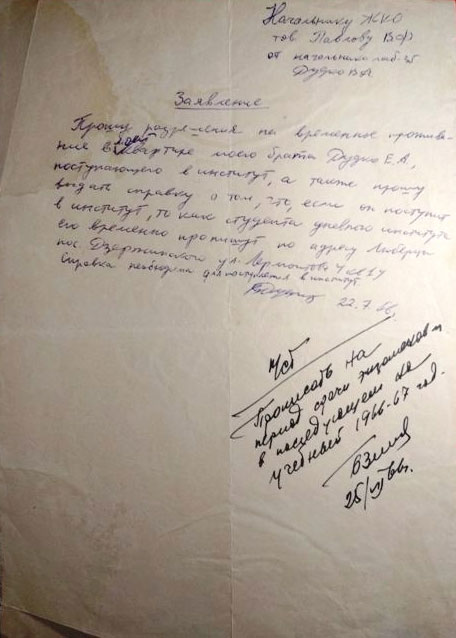 Начальнику ЖКО
тов Павлову В.Ф
от начальника лаб-25
Дудко В.А
Заявление
Прошу разрешения на временное прожива-
ние в моей квартире моего брата Дудко Е.А,
поступающего в институт, а также прошу
выдать справку о том, что, если он поступит
в институт, то как студента дневного института
его временно пропишут по адресу Люберцы
пос. Дзержинского ул. Лермонтова
Справка необходима для поступления в институт
22.7.66г
Прописать на
период сдачи экзаменов и
в последующем на
учебный 1966-67 год.
25/VII 66г.